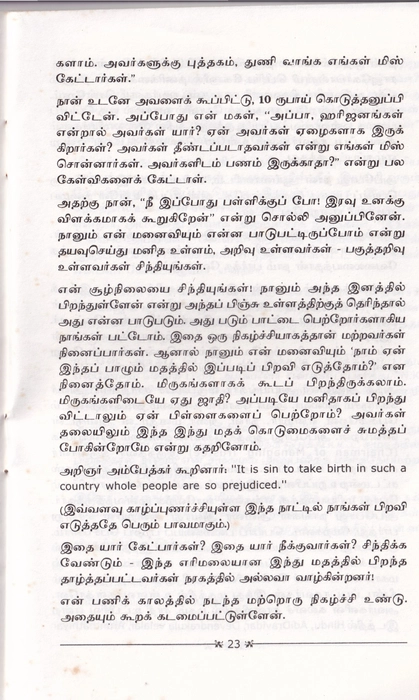 களாம். அவர்களுக்கு புத்தகம், துணி வாங்க எங்கள் மிஸ்
கேட்டார்கள்."
நான் உடனே அவளைக் கூப்பிட்டு, 10 ரூபாய் கொடுத்தனுப்பி
விட்டேன். அப்போது என் மகள், "அப்பா, ஹரிஜனங்கள்
என்றால் அவர்கள் யார்? ஏன் அவர்கள் ஏழைகளாக இருக்
கிறார்கள்? அவர்கள் தீண்டப்படாதவர்கள் என்று எங்கள் மிஸ்
சொன்னார்கள். அவர்களிடம் பணம் இருக்காதா?" என்று பல
கேள்விகளைக் கேட்டாள்.
அதற்கு நான், "நீ இப்போது பள்ளிக்குப் போ! இரவு உனக்கு
விளக்கமாகக் கூறுகிறேன்" என்று சொல்லி அனுப்பினேன்.
நானும் என் மனைவியும் என்ன பாடுபட்டிருப்போம் என்று
தயவுசெய்து மனித உள்ளம், அறிவு உள்ளவர்கள் - பகுத்தறிவு
உள்ளவர்கள் சிந்தியுங்கள்.
என் சூழ்நிலையை சிந்தியுங்கள்! நானும் அந்த இனத்தில்
பிறந்துள்ளேன் என்று அந்தப் பிஞ்சு உள்ளத்திற்குத் தெரிந்தால்
அது என்ன பாடுபடும். அது படும் பாட்டை பெற்றோர்களாகிய
நாங்கள் பட்டோம். இதை ஒரு நிகழ்ச்சியாகத்தான் மற்றவர்கள்
நினைப்பார்கள். ஆனால் நானும் என் மனைவியும் 'நாம் ஏன்
இந்தப் பாழும் மதத்தில் இப்படிப் பிறவி எடுத்தோம்?' என
நினைத்தோம். மிருகங்களாகக் கூடப் பிறந்திருக்கலாம்.
மிருகங்களிடையே ஏது ஜாதி? அப்படியே மனிதாகப் பிறந்து
விட்டாலும் ஏன் பிள்ளைகளைப் பெற்றோம்? அவர்கள்
தலையிலும் இந்த இந்து மதக் கொடுமைகளைச் சுமத்தப்
போகின்றோமே என்று கதறினோம்.
அறிஞர் அம்பேத்கர் கூறினார்: "It is sin to take birth in such a
country whole people are so prejudiced."
(இவ்வளவு காழ்ப்புணர்ச்சியுள்ள இந்த நாட்டில் நாங்கள் பிறவி
எடுத்ததே பெரும் பாவமாகும்.)
இதை யார் கேட்பார்கள்? இதை யார் நீக்குவார்கள்? சிந்திக்க
வேண்டும் - இந்த எரிமலையான இந்து மதத்தில் பிறந்த
தாழ்த்தப்பட்டவர்கள் நரகத்தில் அல்லவா வாழ்கின்றனர்!
என் பணிக் காலத்தில் நடந்த மற்றொரு நிகழ்ச்சி உண்டு.
அதையும் கூறக் கடமைப்பட்டுள்ளேன்.
23